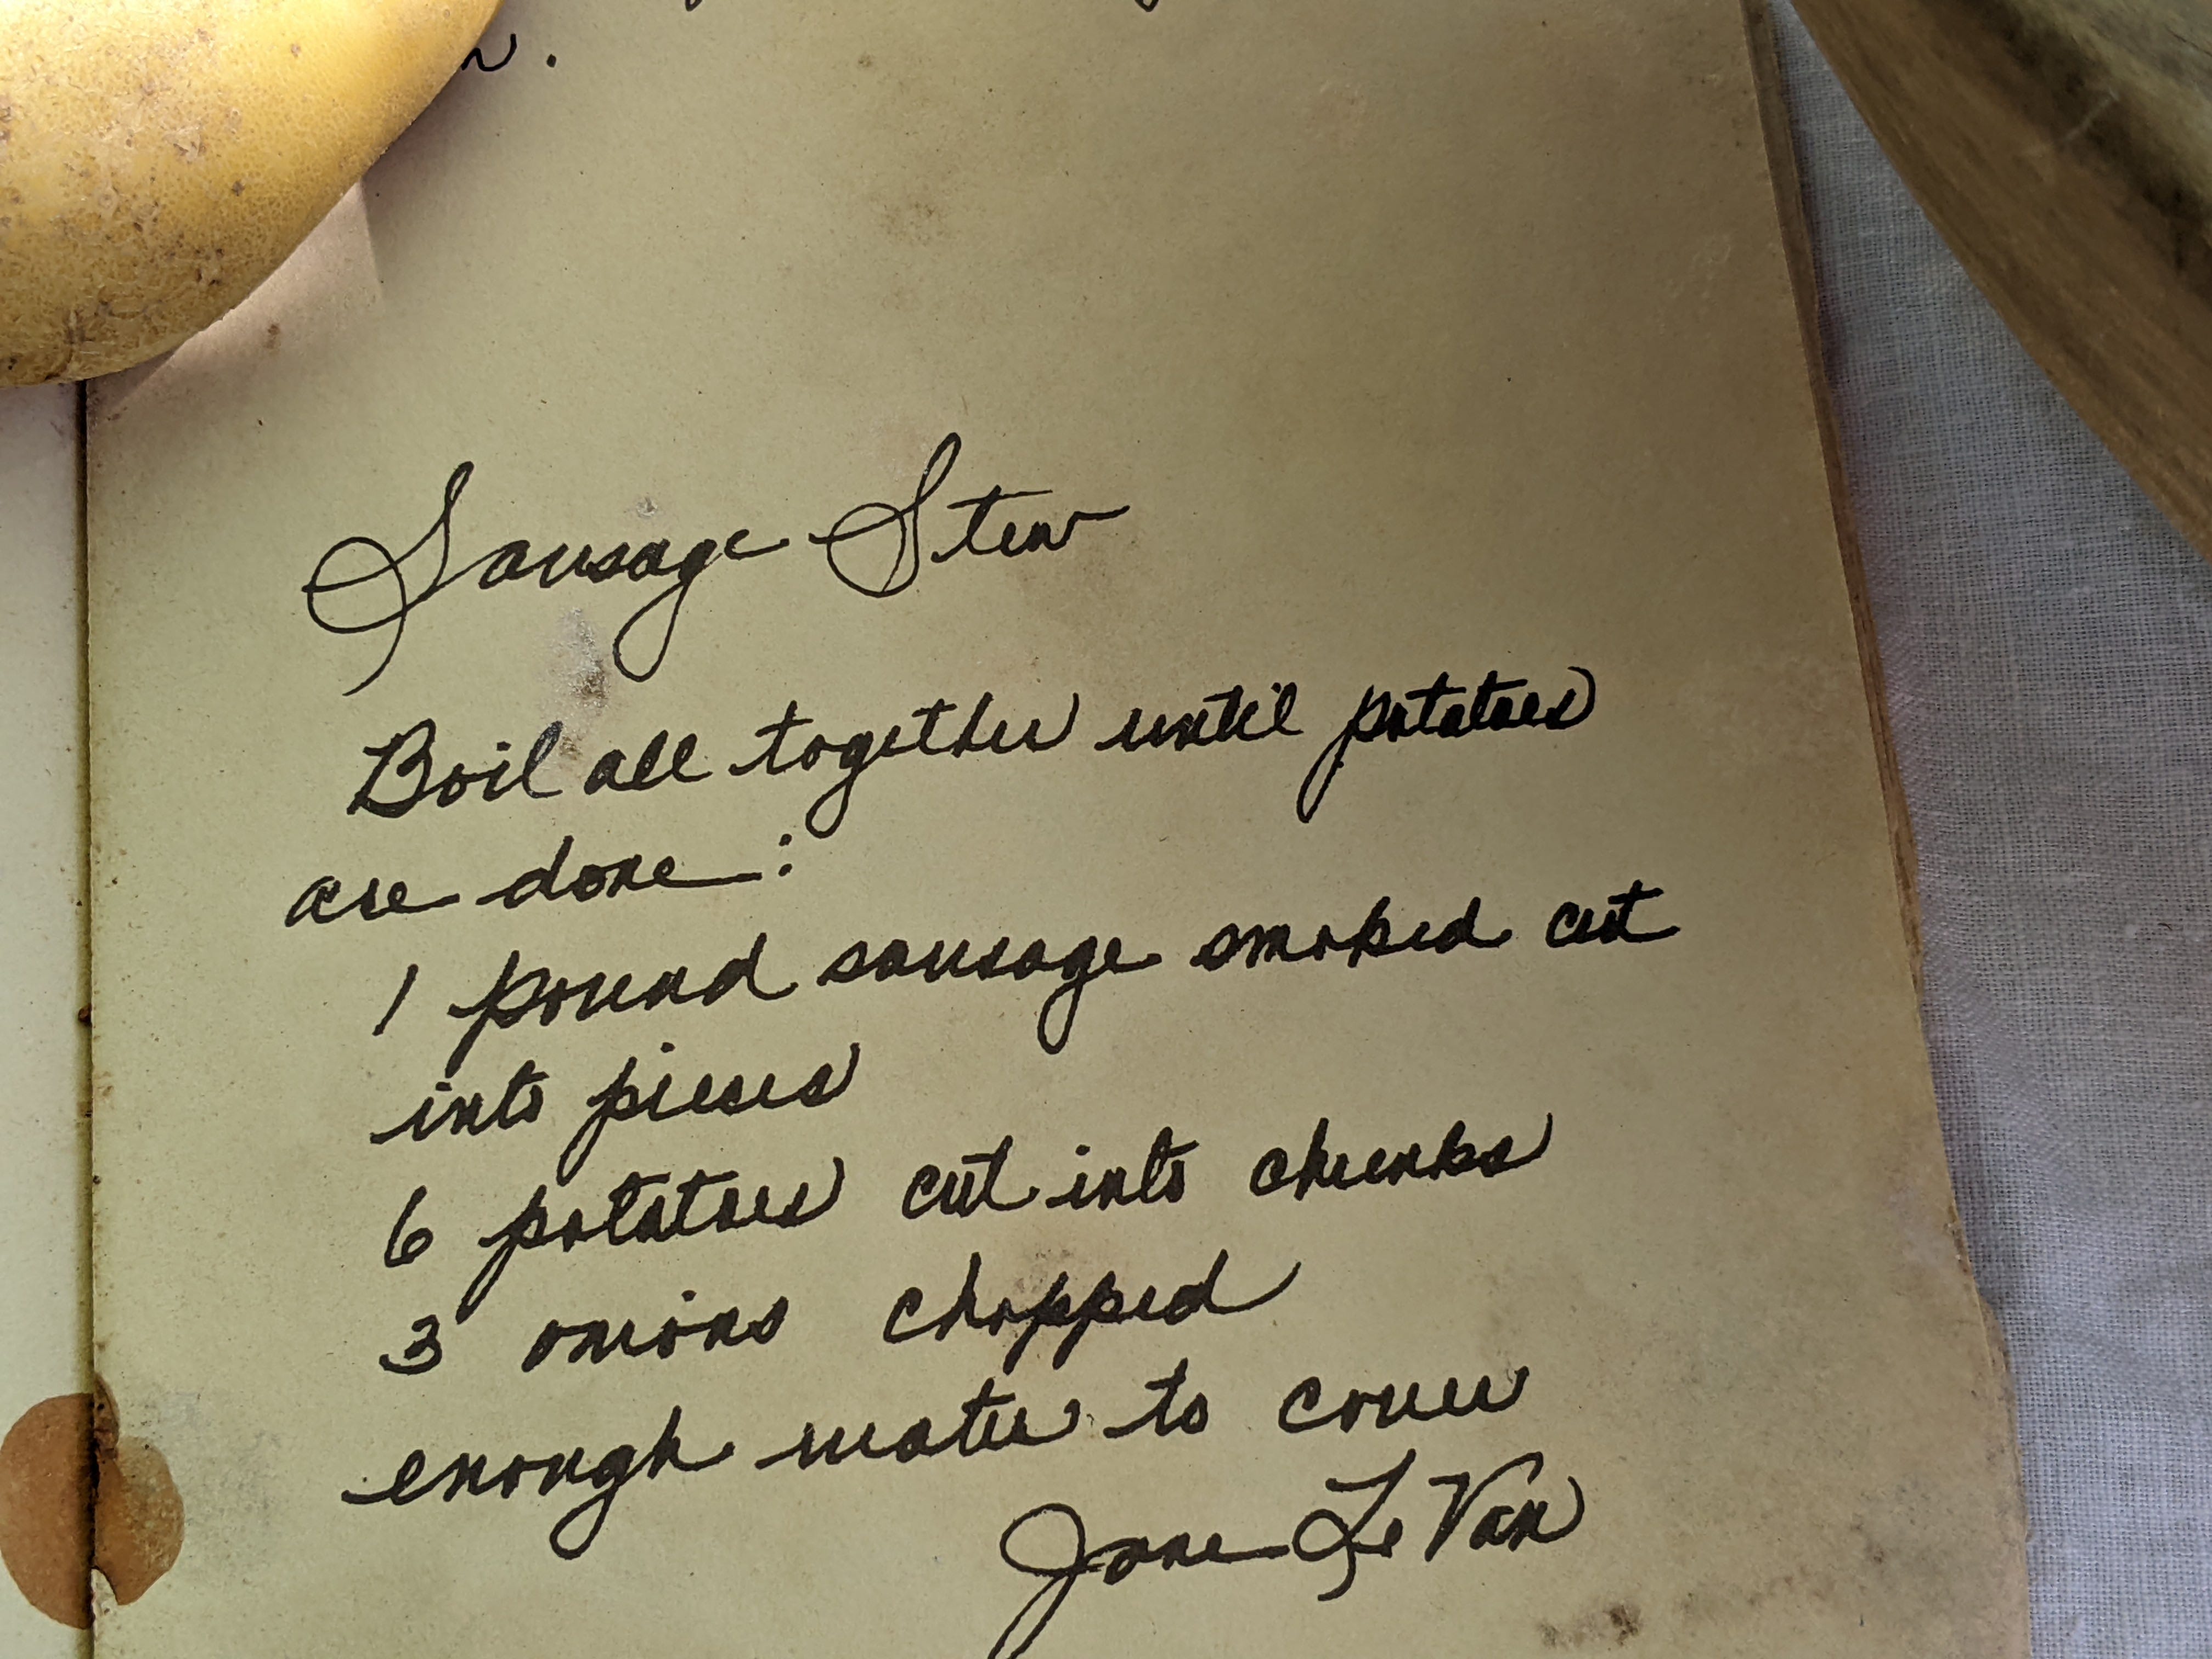 Sausage Stew
Boil all together until potatoes
are done:
1 pound sausage smoked cut
into pieces
6 potatoes cut into chunks
3 onions chopped
enough water to cover
Jane Le Van